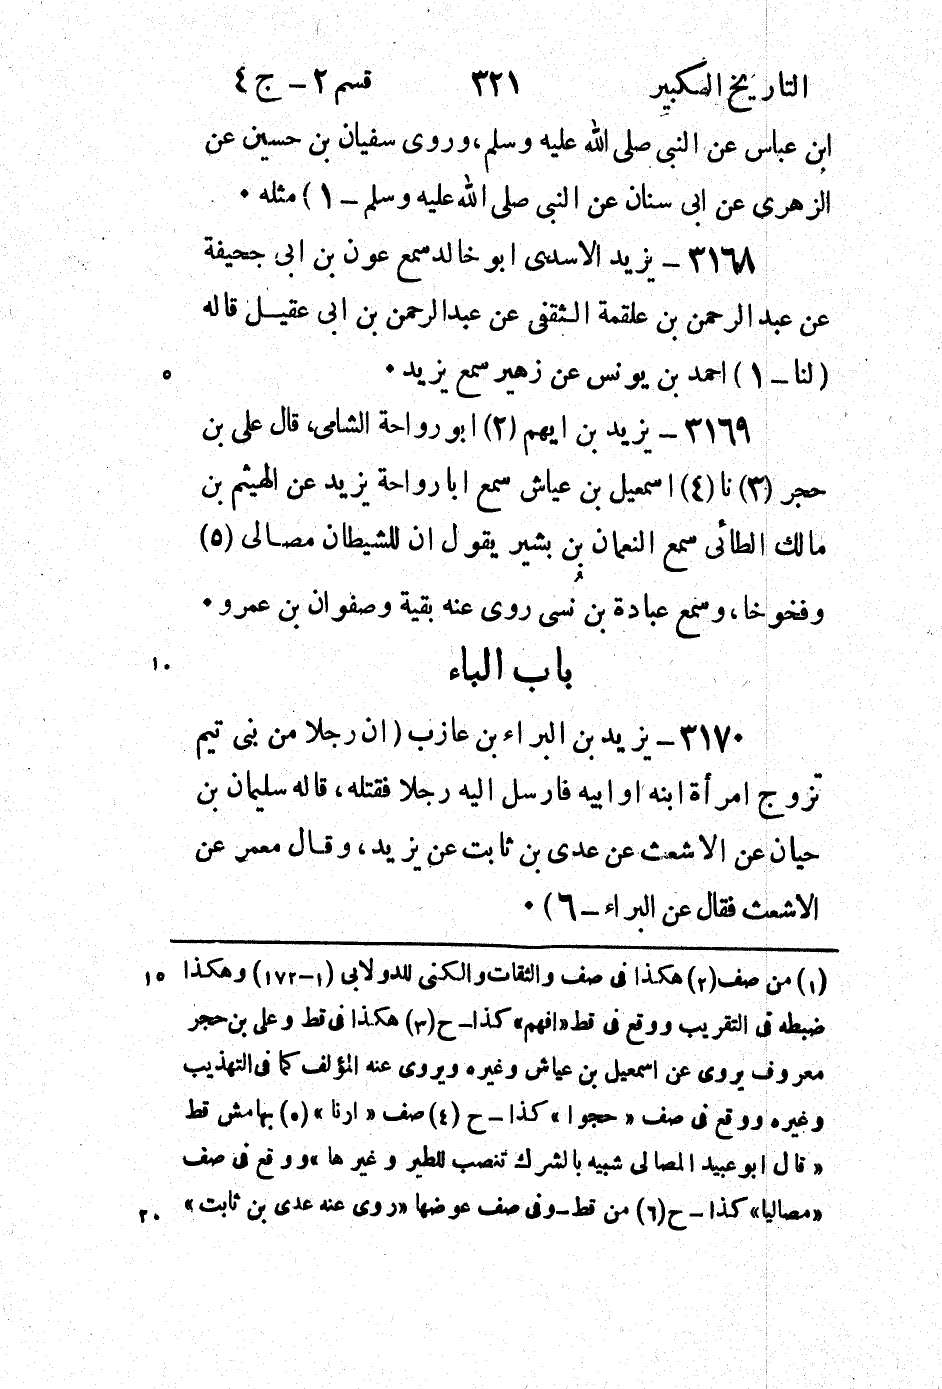 التاريخ الكبير ٣٢١ قسم ٢ - ج ٤
ابن عباس عن النبي صلى الله عليه وسلم، وروى سفيان بن حسين عن
الزهرى عن ابى سنان عن النبي صلى الله عليه وسلم - ١) مثله ٠
٣١٦٨ - يزيد الاسدى ابو خالد سمع عون بن ابى جحيفة
عن عبد الرحمن بن علقمة الثقفى عن عبدالرحمن بن ابى عقيل قاله
(لنا - ١) احمد بن يونس عن زهير سمع يزيد ٠
٥
٣١٦٩ - يزيد بن ايهم (٢) ابو رواحة الشامى، قال على بن
حجر (٣) نا (٤) اسمعيل بن عياش سمع ابا رواحة يزيد عن الهيثم بن
مالك الطائى سمع النعمان بن بشير يقول ان للشيطان مصالى (٥)
وفخوخا، وسمع عبادة بن نُسى روى عنه بقية وصفوان بن عمرو ٠
باب الباء
١٠
٣١٧٠ - يزيد بن البراء بن عازب (ان رجلا من بنى تيم
تزوج امرأة ابنه او ابيه فارسل اليه رجلا فقتله، قاله سليمان بن
حيان عن الاشعث عن عدى بن ثابت عن يزيد، وقال معمر عن
الاشعث فقال عن البراء - ٦) ٠
(١) من صف (٢) هكذا فى صف والثقات والكنى للدولابى (١-١٧٢) وهكذا
١٥
ضبطه فى التقريب ووقع فى قط «افهم» كذا - ح (٣) هكذا فى قط وعلى بن حجر
معروف يروى عن اسمعيل بن عياش وغيره ويروى عنه المؤلف كما فى التهذيب
وغيره ووقع فى صف «حجوا» كذا - ح (٤) صف «ارنا» (٥) بهامش قط
«قال ابو عبيد المصالى شبيه بالشرك تنصب للطير وغيرها» ووقع فى صف
«مصاليا» كذا - ح (٦) من قط - وفى صف عوضها «روى عنه عدى بن ثابت»
٢٠